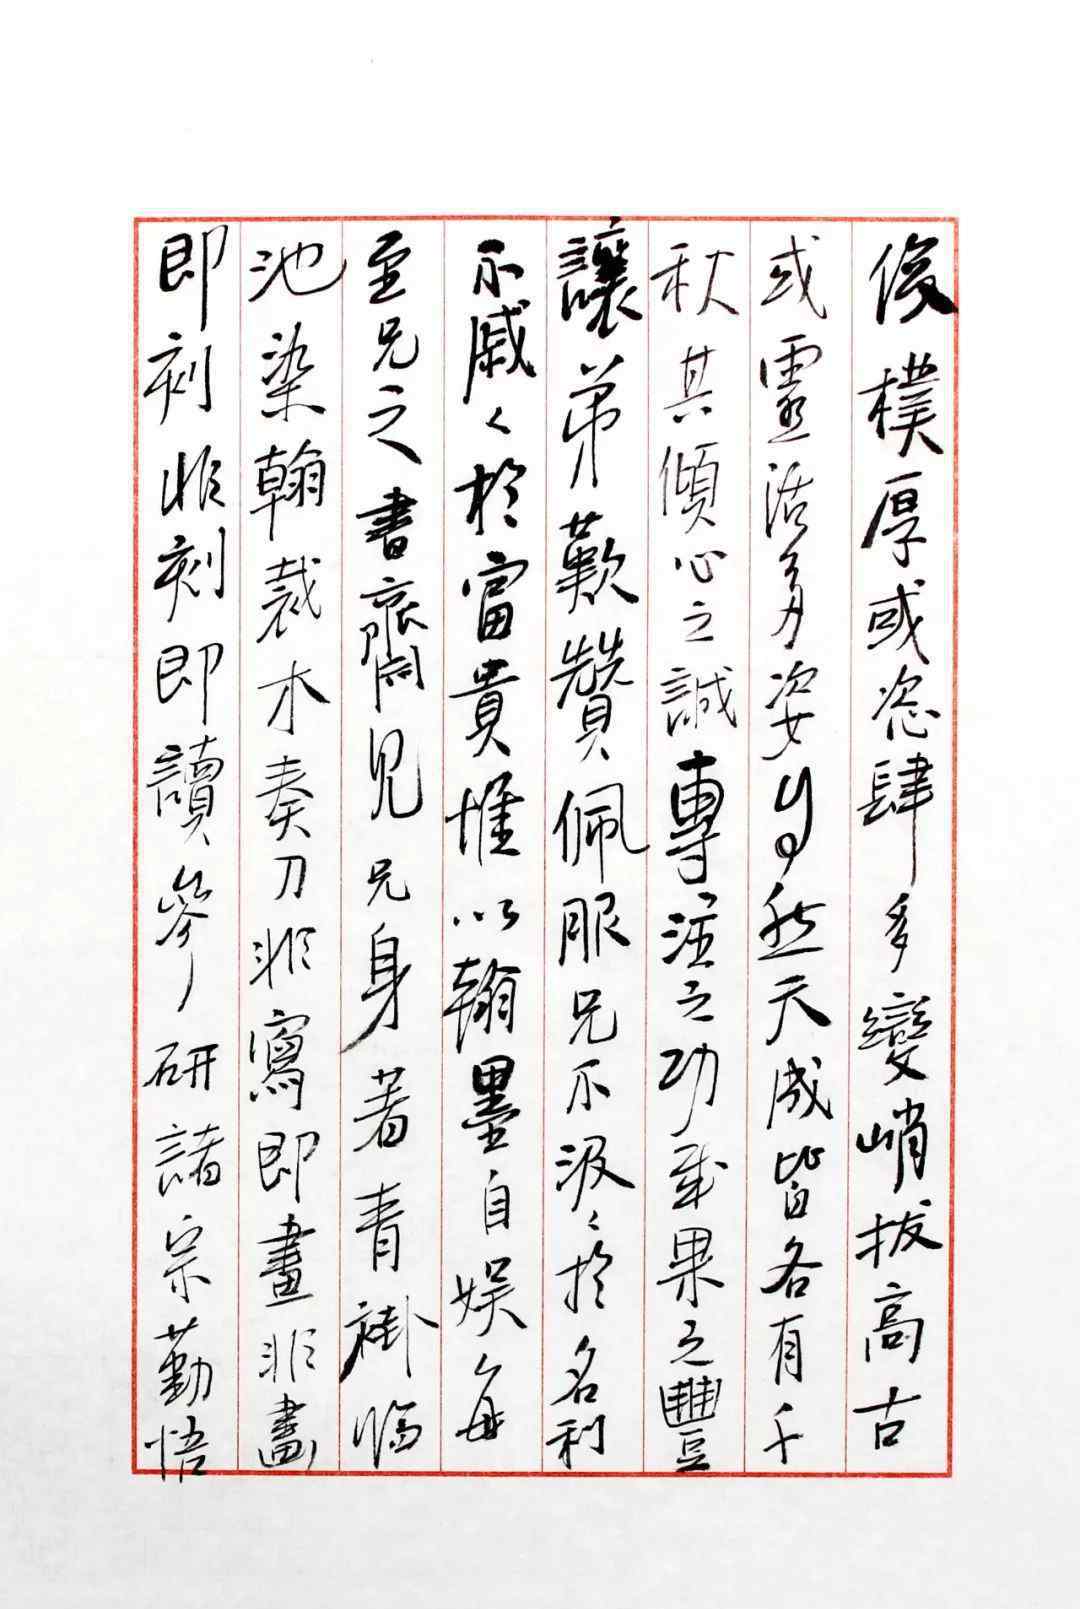 俊樸厚或恣肆多變峭拔高古
或靈活多姿然天成皆各有千
秋其傾心之誠專注之功成果之豐
讓弟歎贊佩服兄不汲〻於名利
不戚〻於富貴惟以翰墨自娛每
至兄之書齋見兄身著青褂臨
池染翰裁木奏刀非寫即畫非畫
即刻非刻即讀參研諸宗勤悟